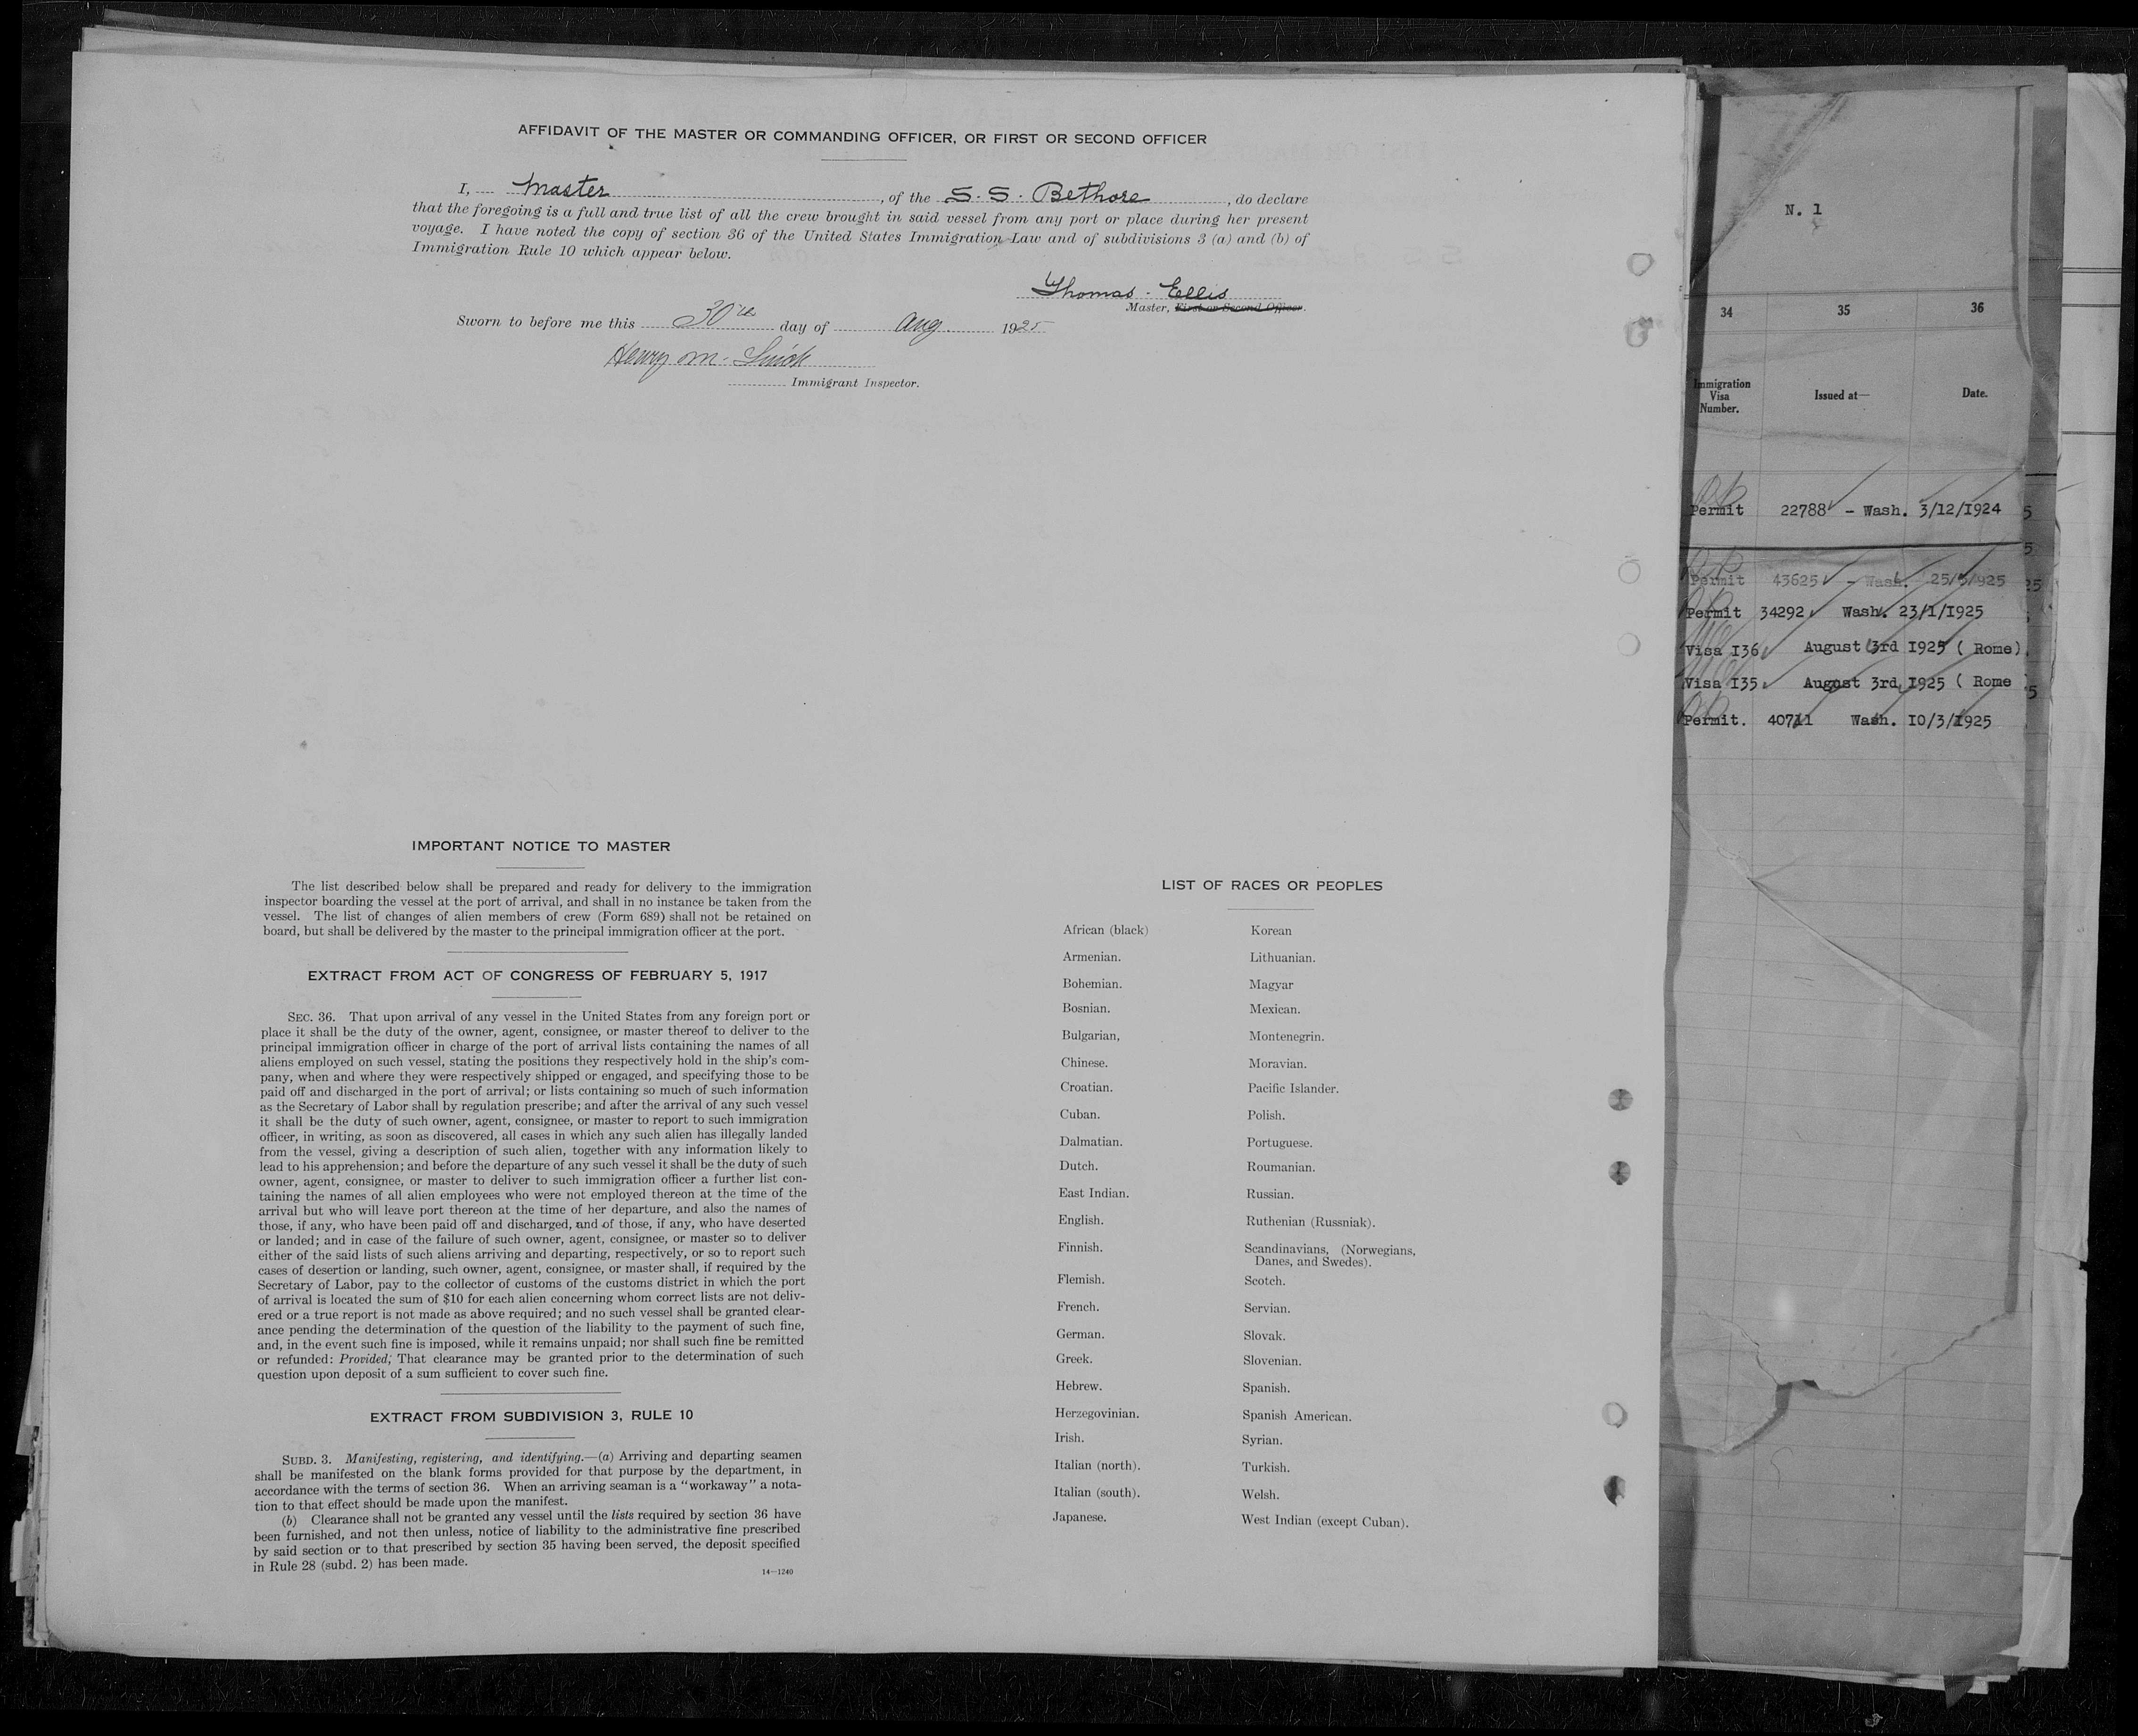 AFFIDAVIT OF THE MASTER OR COMMANDING OFFICER, OR FIRST OR SECOND OFFICER
I, Master, of the S. S. Bethore, do declare
that the foregoing is a full and true list of all the crew brought in said vessel from any port or place during her present
voyage. I have noted the copy of section 36 of the United States Immigration Law and of subdivisions 3 (a) and (b) of
Immigration Rule 10 which appear below.
Thomas - Ellis
Master, First or Second Officer.
Sworn to before me this 30th day of Aug 1925
Henry M.
Immigrant Inspector.
IMPORTANT NOTICE TO MASTER
The list described below shall be prepared and ready for delivery to the immigration
inspector boarding the vessel at the port of arrival, and shall in no instance be taken from the
vessel. The list of changes of alien members of crew (Form 689) shall not be retained on
board, but shall be delivered by the master to the principal immigration officer at the port.
EXTRACT FROM ACT OF CONGRESS OF FEBRUARY 5, 1917
SEC. 36. That upon arrival of any vessel in the United States from any foreign port or
place it shall be the duty of the owner, agent, consignee, or master thereof to deliver to the
principal immigration officer in charge of the port of arrival lists containing the names of all
aliens employed on such vessel, stating the positions they respectively hold in the ship's com-
pany, when and where they were respectively shipped or engaged, and specifying those to be
paid off and discharged in the port of arrival; or lists containing so much of such information
as the Secretary of Labor shall by regulation prescribe; and after the arrival of any such vessel
it shall be the duty of such owner, agent, consignee, or master to report to such immigration
officer, in writing, as soon as discovered, all cases in which any such alien has illegally landed
from the vessel, giving a description of such alien, together with any information likely to
lead to his apprehension; and before the departure of any such vessel it shall be the duty of such
owner, agent, consignee, or master to deliver to such immigration officer a further list con-
taining the names of all alien employees who were not employed thereon at the time of the
arrival but who will leave port thereon at the time of her departure, and also the names of
those, if any, who have been paid off and discharged, and of those, if any, who have deserted
or landed; and in case of the failure of such owner, agent, consignee, or master so to deliver
either of the said lists of such aliens arriving and departing, respectively, or so to report such
cases of desertion or landing, such owner, agent, consignee, or master shall, if required by the
Secretary of Labor, pay to the collector of customs of the customs district in which the port
of arrival is located the sum of $10 for each alien concerning whom correct lists are not deliv-
ered or a true report is not made as above required; and no such vessel shall be granted clear-
ance pending the determination of the question of the liability to the payment of such fine,
and, in the event such fine is imposed, while it remains unpaid; nor shall such fine be remitted
or refunded: Provided, That clearance may be granted prior to the determination of such
question upon deposit of a sum sufficient to cover such fine.
EXTRACT FROM SUBDIVISION 3, RULE 10
SUBD. 3. Manifesting, registering, and identifying.—(a) Arriving and departing seamen
shall be manifested on the blank forms provided for that purpose by the department, in
accordance with the terms of section 36. When an arriving seaman is a "workaway" a nota-
tion to that effect should be made upon the manifest.
(b) Clearance shall not be granted any vessel until the lists required by section 36 have
been furnished, and not then unless, notice of liability to the administrative fine prescribed
by said section or to that prescribed by section 35 having been served, the deposit specified
in Rule 28 (subd. 2) has been made.
14—1240
LIST OF RACES OR PEOPLES
African (black) Korean
Armenian. Lithuanian.
Bohemian. Magyar
Bosnian. Mexican.
Bulgarian, Montenegrin.
Chinese. Moravian.
Croatian. Pacific Islander.
Cuban. Polish.
Dalmatian. Portuguese.
Dutch. Roumanian.
East Indian. Russian.
English. Ruthenian (Russniak).
Finnish. Scandinavians, (Norwegians,
Danes, and Swedes).
Flemish. Scotch.
French. Servian.
German. Slovak.
Greek. Slovenian.
Hebrew. Spanish.
Herzegovinian. Spanish American.
Irish. Syrian.
Italian (north). Turkish.
Italian (south). Welsh.
Japanese. West Indian (except Cuban).
N. 1
34 35 36
Immigration
Visa
Number.
Issued at—
Date.
Permit 22788 - Wash. 3/12/1924
Permit 43625 - Wash. 25/5/925
Permit 34292 Wash. 23/1/1925
Visa I36 August 3rd I925 ( Rome)
Visa I35 August 3rd I925 ( Rome
Permit. 40711 Wash. I0/3/1925